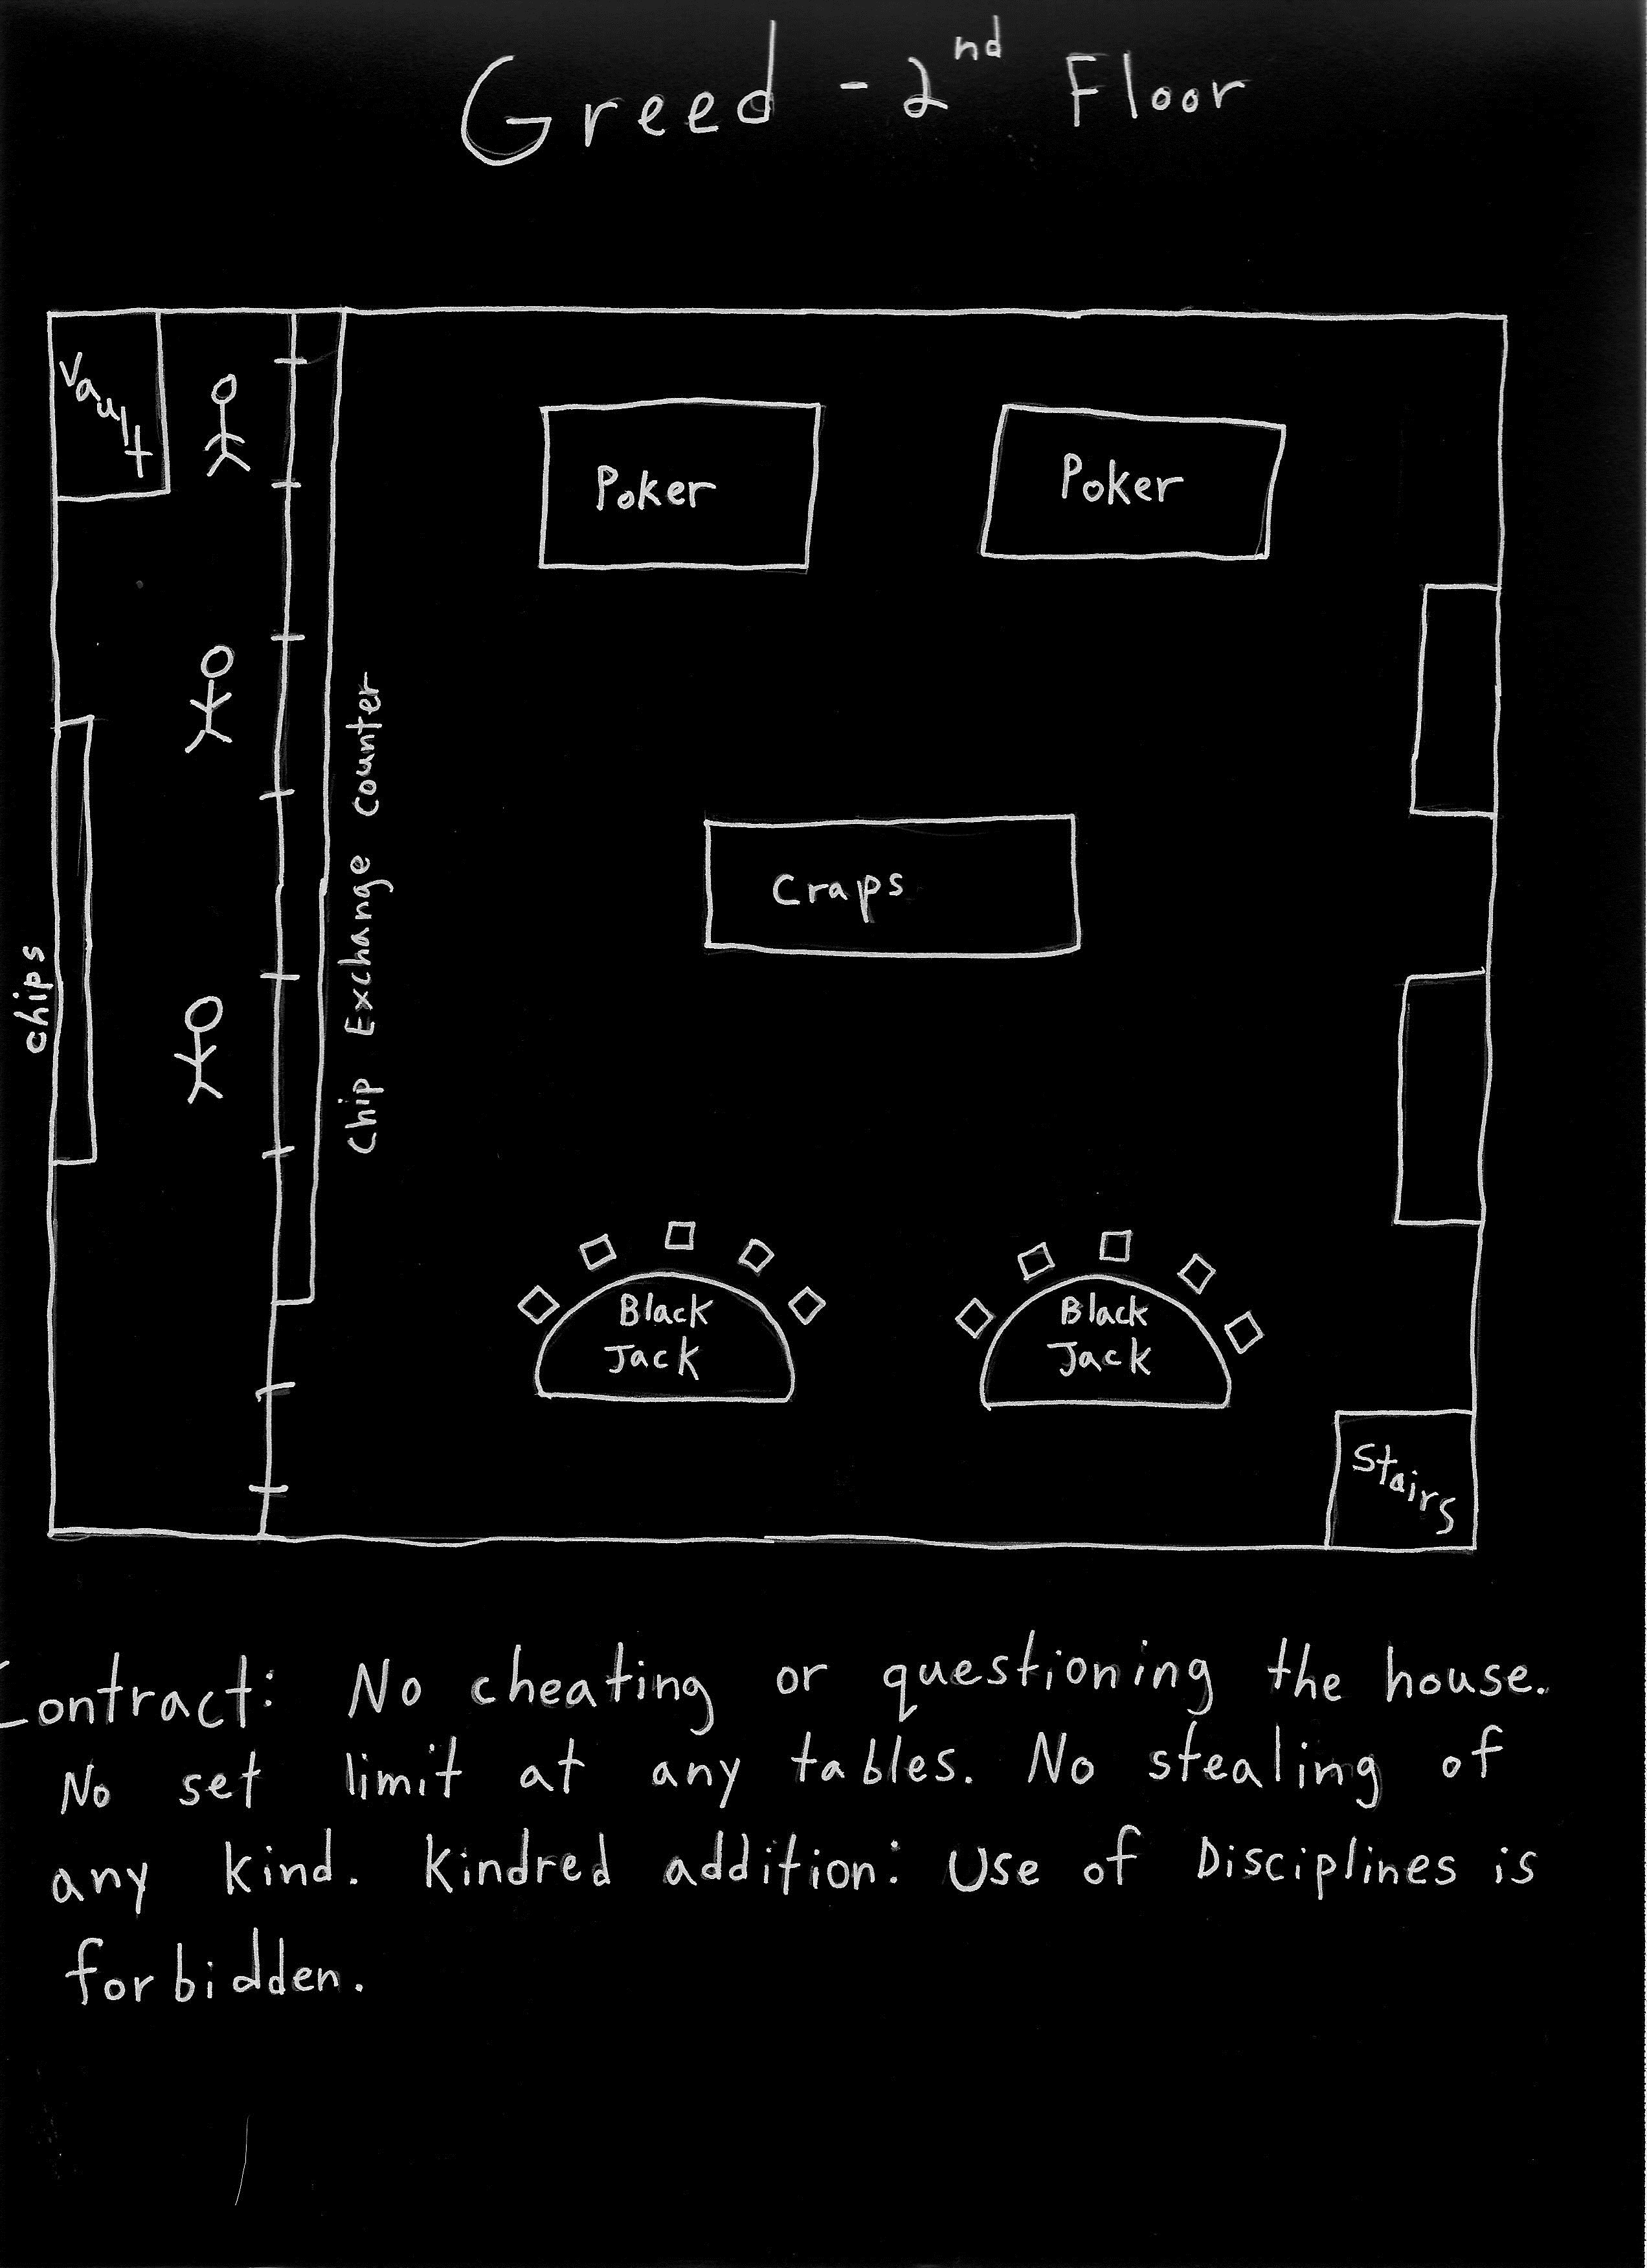 Greed - 2nd Floor
Vault
Poker
Poker
Chip Exchange Counter
Craps
chips
Black
Jack
Black
Jack
Stairs
Contract: No cheating or questioning the house.
No set limit at any tables. No stealing of
any kind. Kindred addition: Use of Disciplines is
forbidden.